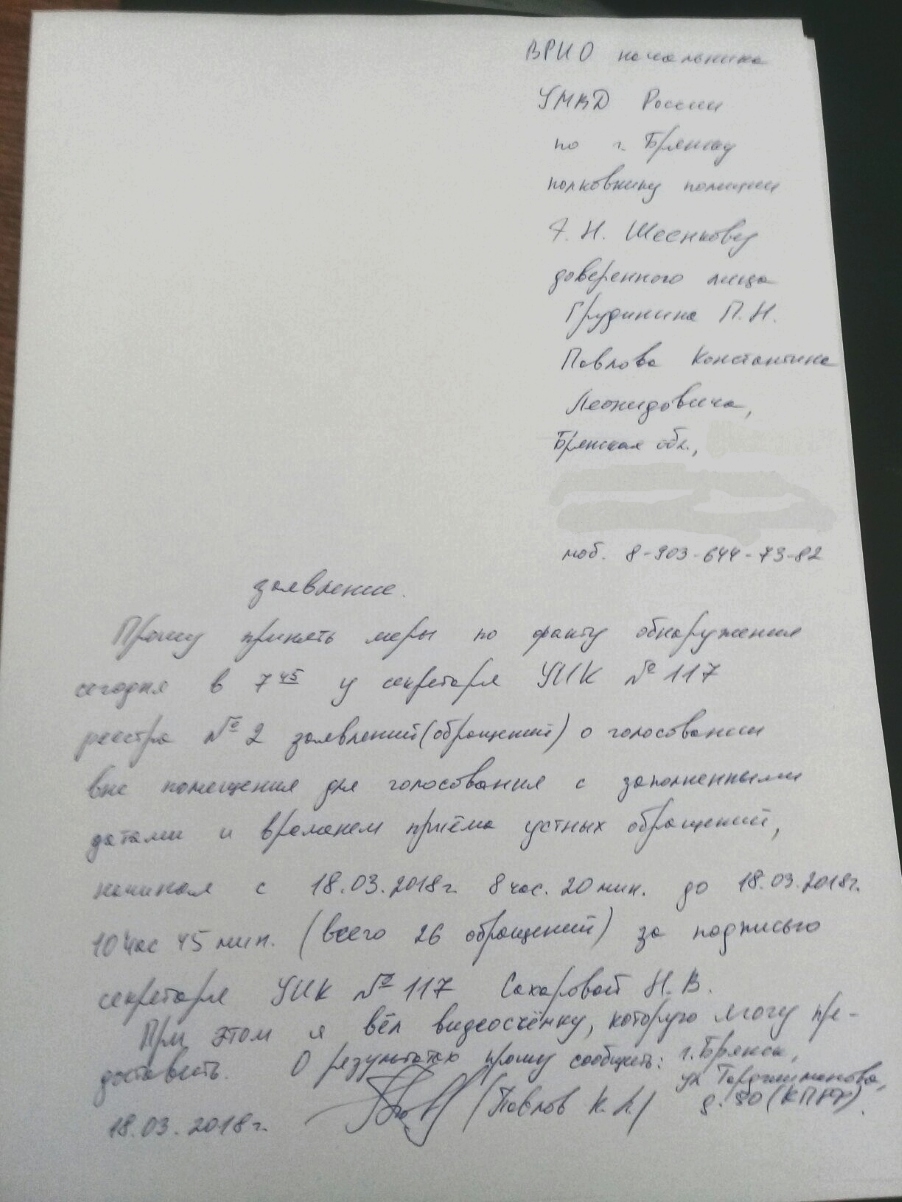 ВРИО начальника
УМВД России
по г. Брянску
полковнику полиции
А. Н. Шеснкову
доверенного лица
Грудинина П.Н.
Павлова Константина
Леонидовича,
Брянская обл.,
моб. 8-903-644-73-82
заявление.
Прошу принять меры по факту обнаружения
сегодня в 7 45 у секретаря УИК № 117
реестра № 2 заявлений (обращений) о голосовании
вне помещения для голосования с заполненными
датами и временем приёма устных обращений,
начиная с 18.03.2018г. 8 час. 20 мин. до 18.03.2018г.
10 час 45 мин. (всего 26 обращений) за подписью
секретаря УИК № 117 Сахаровой Н.В.
При этом я вёл видеосъёмку, которую могу пре-
доставить. О результатах прошу сообщить: г.Брянск,
ул
18.03.2018г. /Павлов К.Л/ д. 80 (КПРФ).